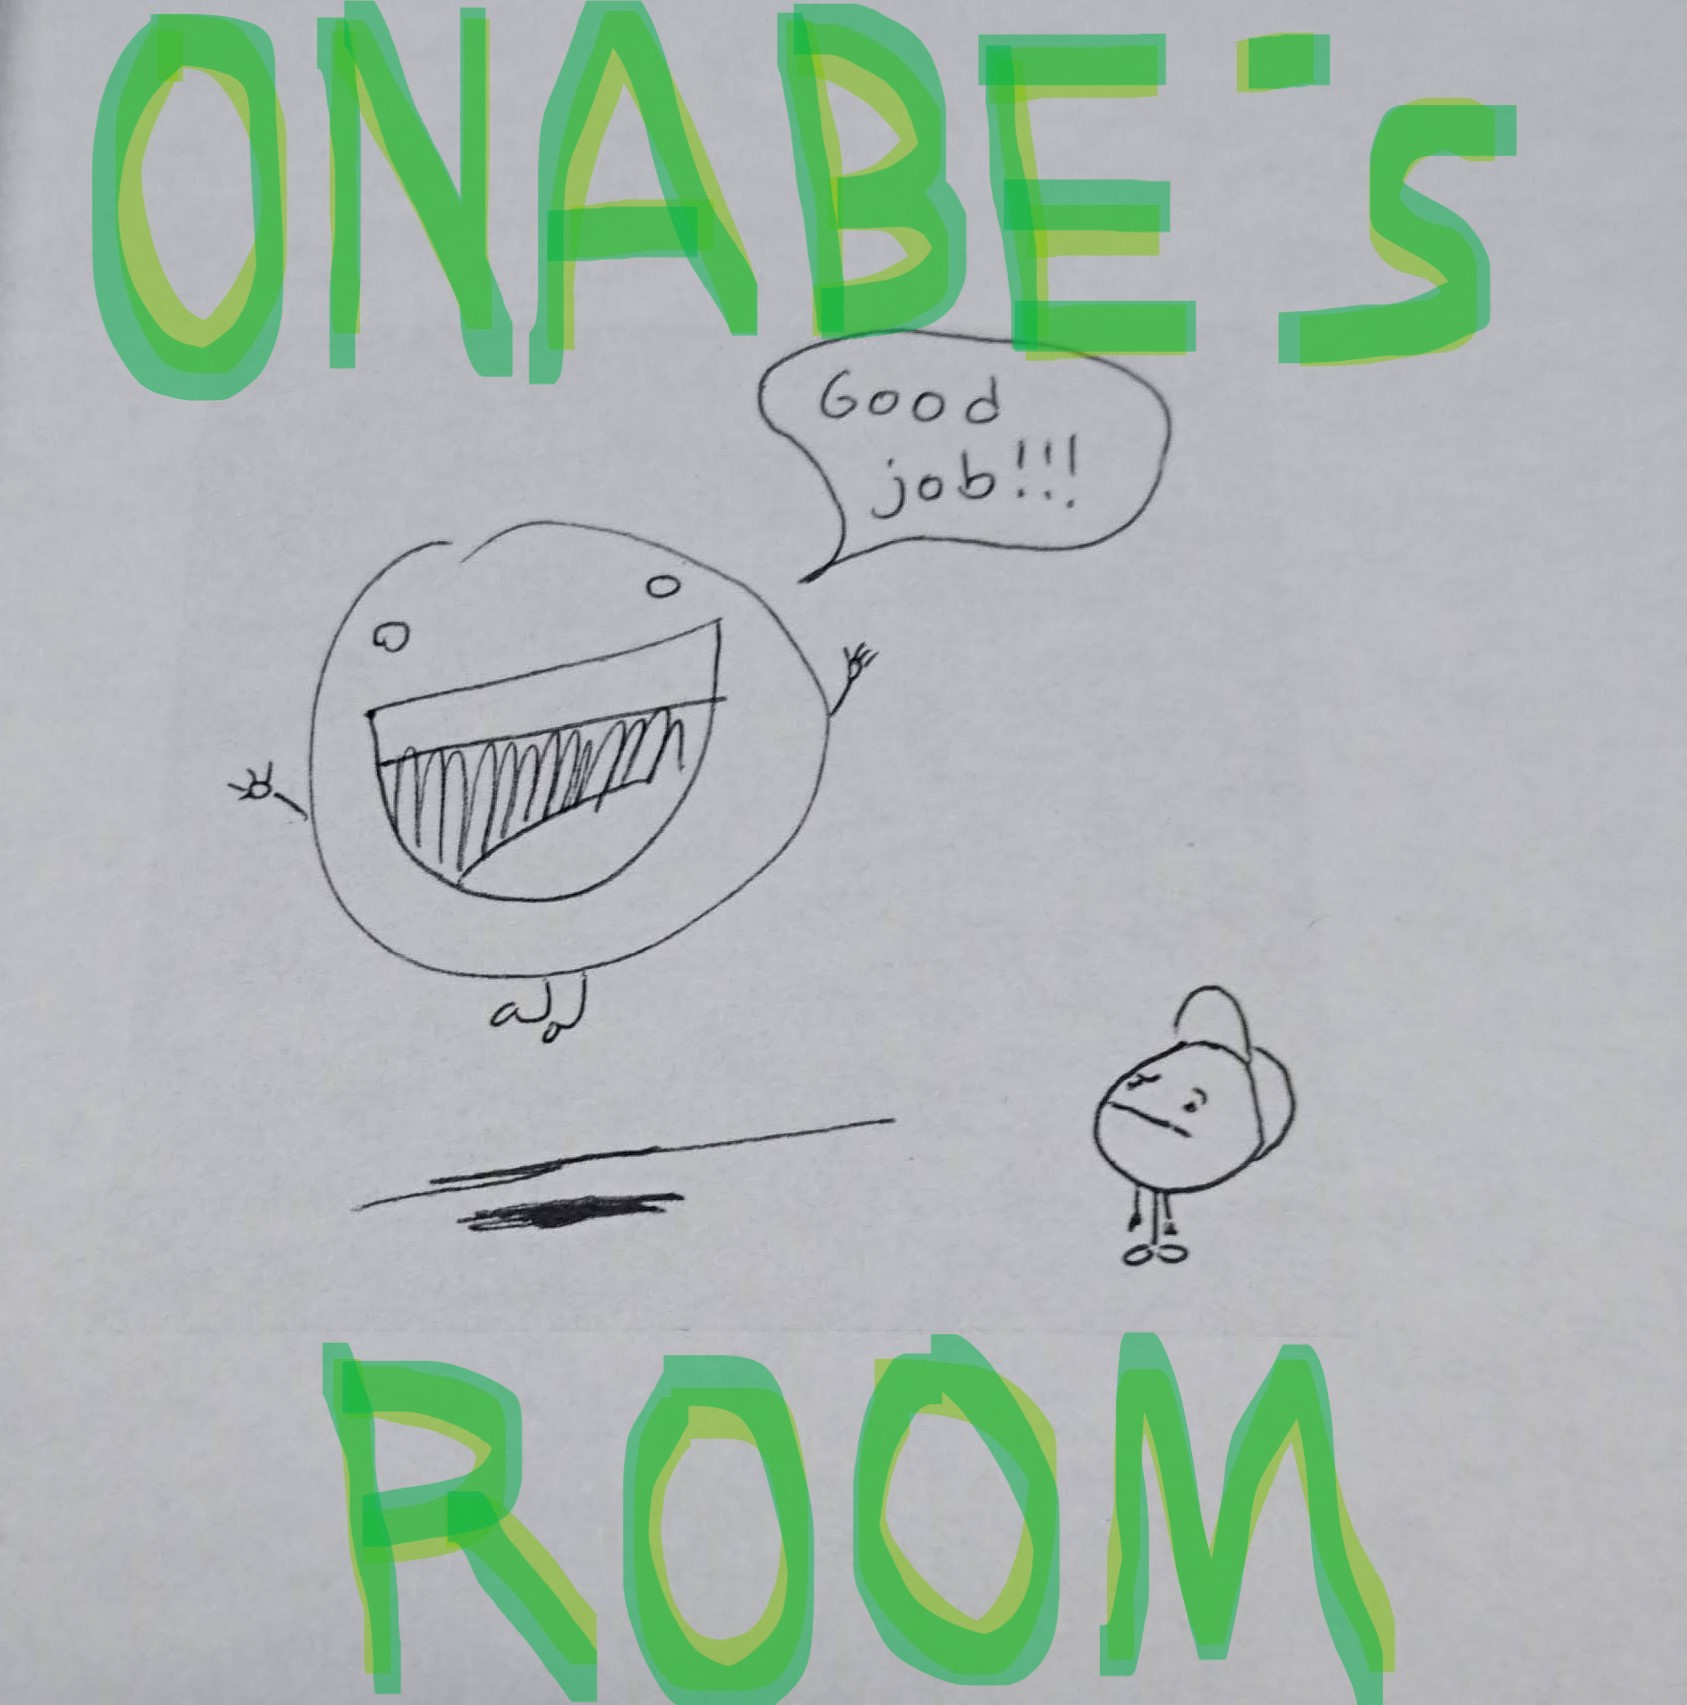 ONABE's
Good
job!!!
ROOM